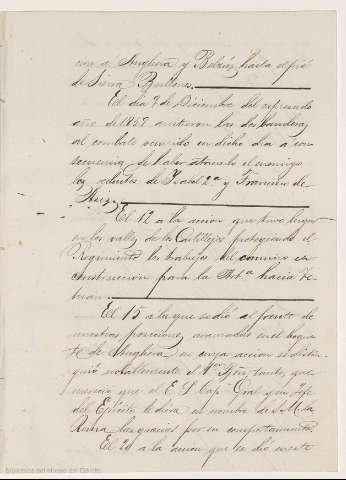 con á Anghera y Belzú, hasta el pié
de Sierra Bullones.
El dia 9 de Diciembre del espresado
año de 1859 asistieron las dos banderas
al combate ocurrido en dicho dia á con-
secuencia de haber atacado el enemigo
los reductos de Ysabel 2.ª y Francisco de
Asis.
El 12 a la accion que tuvo lugar
en los valles de los Castillejos protegiendo el
Regimiento los trabajos del camino en
construccion para la Art.ª hacia Te-
tuan.
El 15 a la que se dió al frente de
nuestras posiciones avanzadas en el boque-
te de Anghera en cuya accion se distin-
guió notablemente el 1.er Bon. tanto, que
mereció que el E. S. Cap.n Gral. y en Jefe
del Ejército le diera en nombre de S. M. la
Reina las gracias por su comportamiento.
El 20 a la accion que se dió en este
Biblioteca del Museo del Ejército